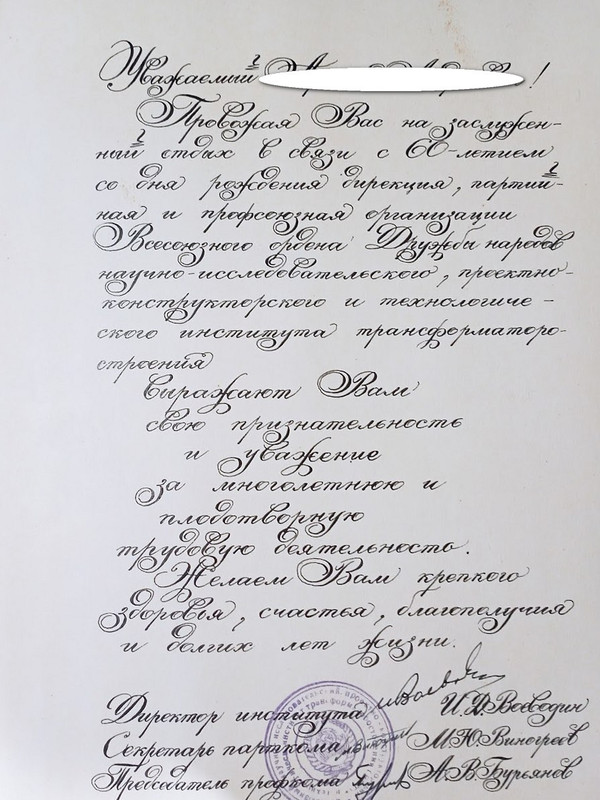 Уважаемый !
Провожая Вас на заслужен-
ный отдых в связи с 60-летием
со дня рождения дирекция, партий-
ная и профсоюзная организации
Всесоюзного ордена Дружбы народов
научно-исследовательского, проектно-
конструкторского и технологиче-
ского института трансформаторо-
строения
выражают Вам
свою признательность
и уважение
за многолетнюю и
плодотворную
трудовую деятельность.
Желаем Вам крепкого
здоровья, счастья, благополучия
и долгих лет жизни.
Директор института И.Д.Воеводин
Секретарь парткома М.Ю.Виногреев
Председатель профкома А.В.Бурьянов